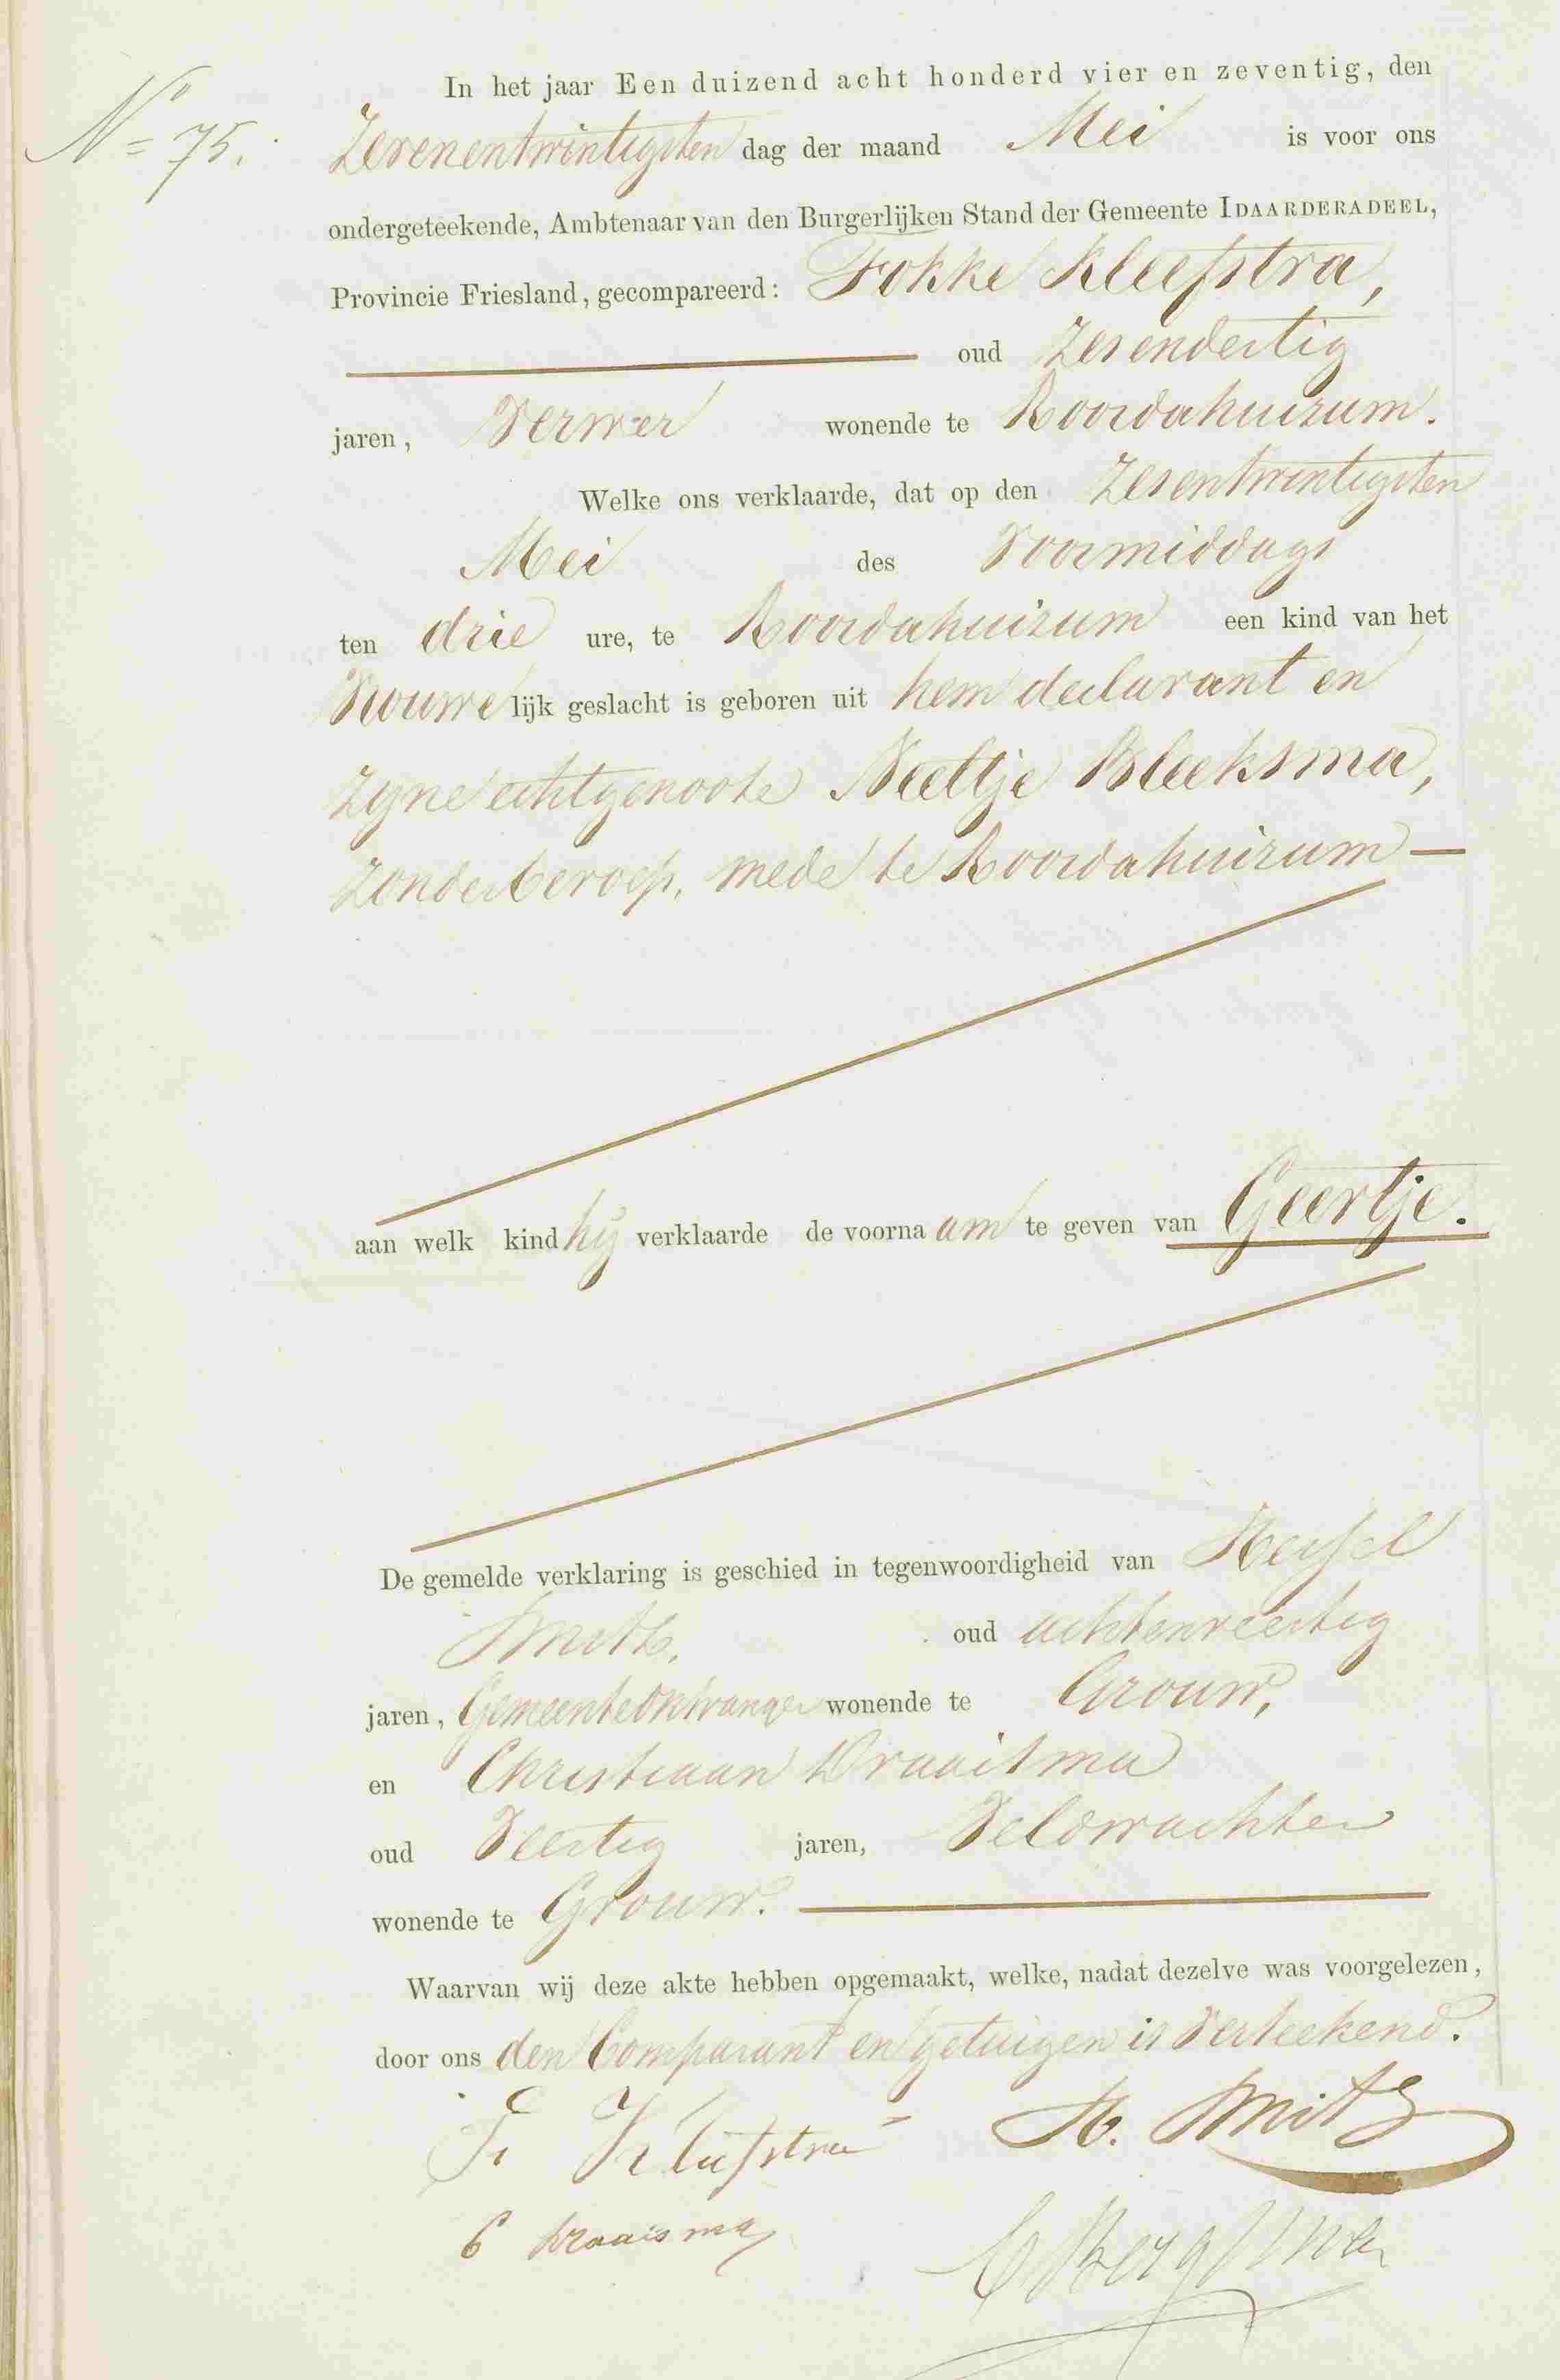 In het jaar Een duizend acht honderd vier en zeventig, den
No 75.
Zevenentwintigsten dag der maand Mei is voor ons
ondergeteekende, Ambtenaar van den Burgerlijken Stand der Gemeente IDAARDERADEEL,
Provincie Friesland, gecompareerd: Fokke Kleefstra,
oud Zesendertig
jaren, Verwer wonende te Roordahuizum.
Welke ons verklaarde, dat op den Zesentwintigsten
Mei des Voormiddags
ten drie ure, te Roordahuizum een kind van het
Vrouwelijk geslacht is geboren uit hem declarant en
zyne echtgenoote Neeltje Bleeksma,
zonder beroep, mede te Roordahuizum —
aan welk kind hij verklaarde de voornaam te geven van Geertje.
De gemelde verklaring is geschied in tegenwoordigheid van Hessel
Smits, oud achtenveertig
jaren, Gemeenteontvanger wonende te Grouw,
en Christiaan Draaisma
oud Veertig jaren, Veldwachter
wonende te Grouw.
Waarvan wij deze akte hebben opgemaakt, welke, nadat dezelve was voorgelezen,
door ons den Comparant en getuigen is Verteekend.
F. Kleefstra H. Smits
C Draaisma Bergsma